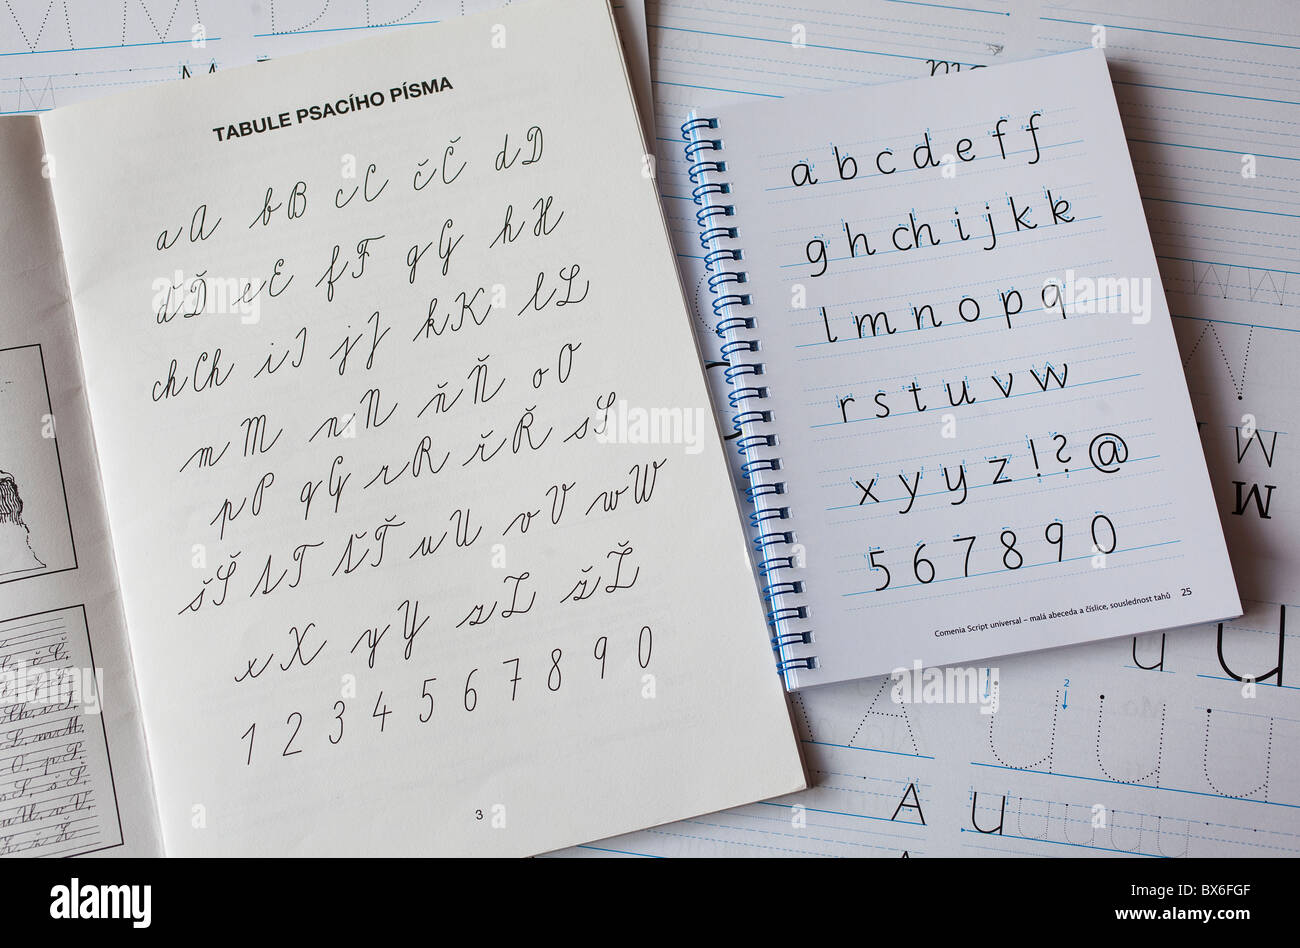 TABULE PSACÍHO PÍSMA
aA bB cC čČ dD
ďĎ eE fF gG hH
chCh iI jJ kK lL
mM nN ňŇ oO
pP qQ rR řŘ sS
šŠ tT ťŤ uU vV wW
xX yY zZ žŽ
1 2 3 4 5 6 7 8 9 0
3
a b c d e f f
g h ch i j k k
l m n o p q
r s t u v w
x y y z ! ? @
5 6 7 8 9 0
Comenia Script universal – malá abeceda a číslice, souslednost tahů 25
M
M
u u
2
A u
alamy
Image ID: BX6FGF
www.alamy.com